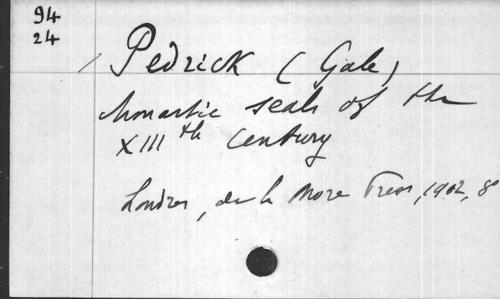 94
24
Pedrick (Gale)
Monastic seals of the
XIIIth Century
Londres, de la More Press, 1902, 8°